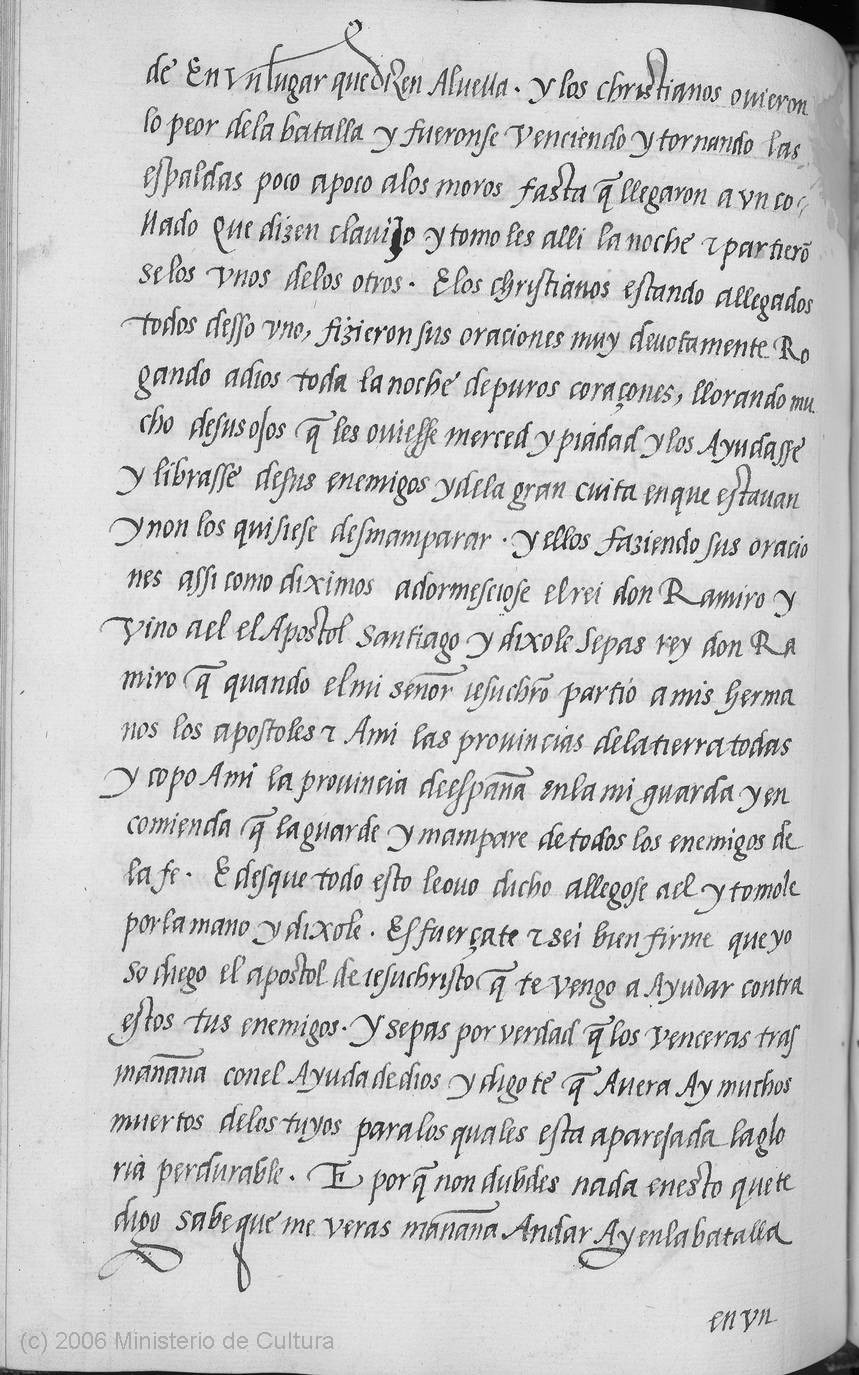 de En vn lugar que dizen Aluella. y los christianos ouieron
lo peor dela batalla y fueronse venciendo y tornando las
espaldas poco apoco alos moros fasta q̃ llegaron a vn co-
llado Que dizen clauijo y tomo les alli la noche ⁊ partierõ
se los vnos delos otros. E los christianos estando allegados
todos desso vno, fizieron sus oraciones muy deuotamente Ro
gando adios toda la noche de puros coraçones, llorando mu
cho desus ojos q̃ les ouiesse merced y piadad y los Ayudasse
y librasse desus enemigos y dela gran cuita en que estauan
y non los quisiese desmamparar. y ellos faziendo sus oracio
nes assi como diximos adormesciose el rei don Ramiro y
vino a el el Apostol Santiago y dixole Sepas rey don Ra
miro q̃ quando el mi señor iesuchr̃o partio a mis herma
nos los apostoles ⁊ Ami las prouincias dela tierra todas
y copo Ami la prouincia de españa en la mi guarda y en
comienda q̃ la guarde y mampare de todos los enemigos de
la fe. E desque todo esto le ouo dicho allegose a el y tomole
por la mano y dixole. Esfuerçate ⁊ sei bien firme que yo
so diego el apostol de iesuchristo q̃ te vengo a Ayudar contra
estos tus enemigos. y sepas por verdad q̃ los venceras tras
mañana con el Ayuda de dios y digo te q̃ Auera Ay muchos
muertos delos tuyos para los quales esta aparejada la glo
ria perdurable. E por q̃ non dubdes nada en esto que te
digo sabe que me veras mañana Andar Ay en la batalla
en vn
(c) 2006 Ministerio de Cultura